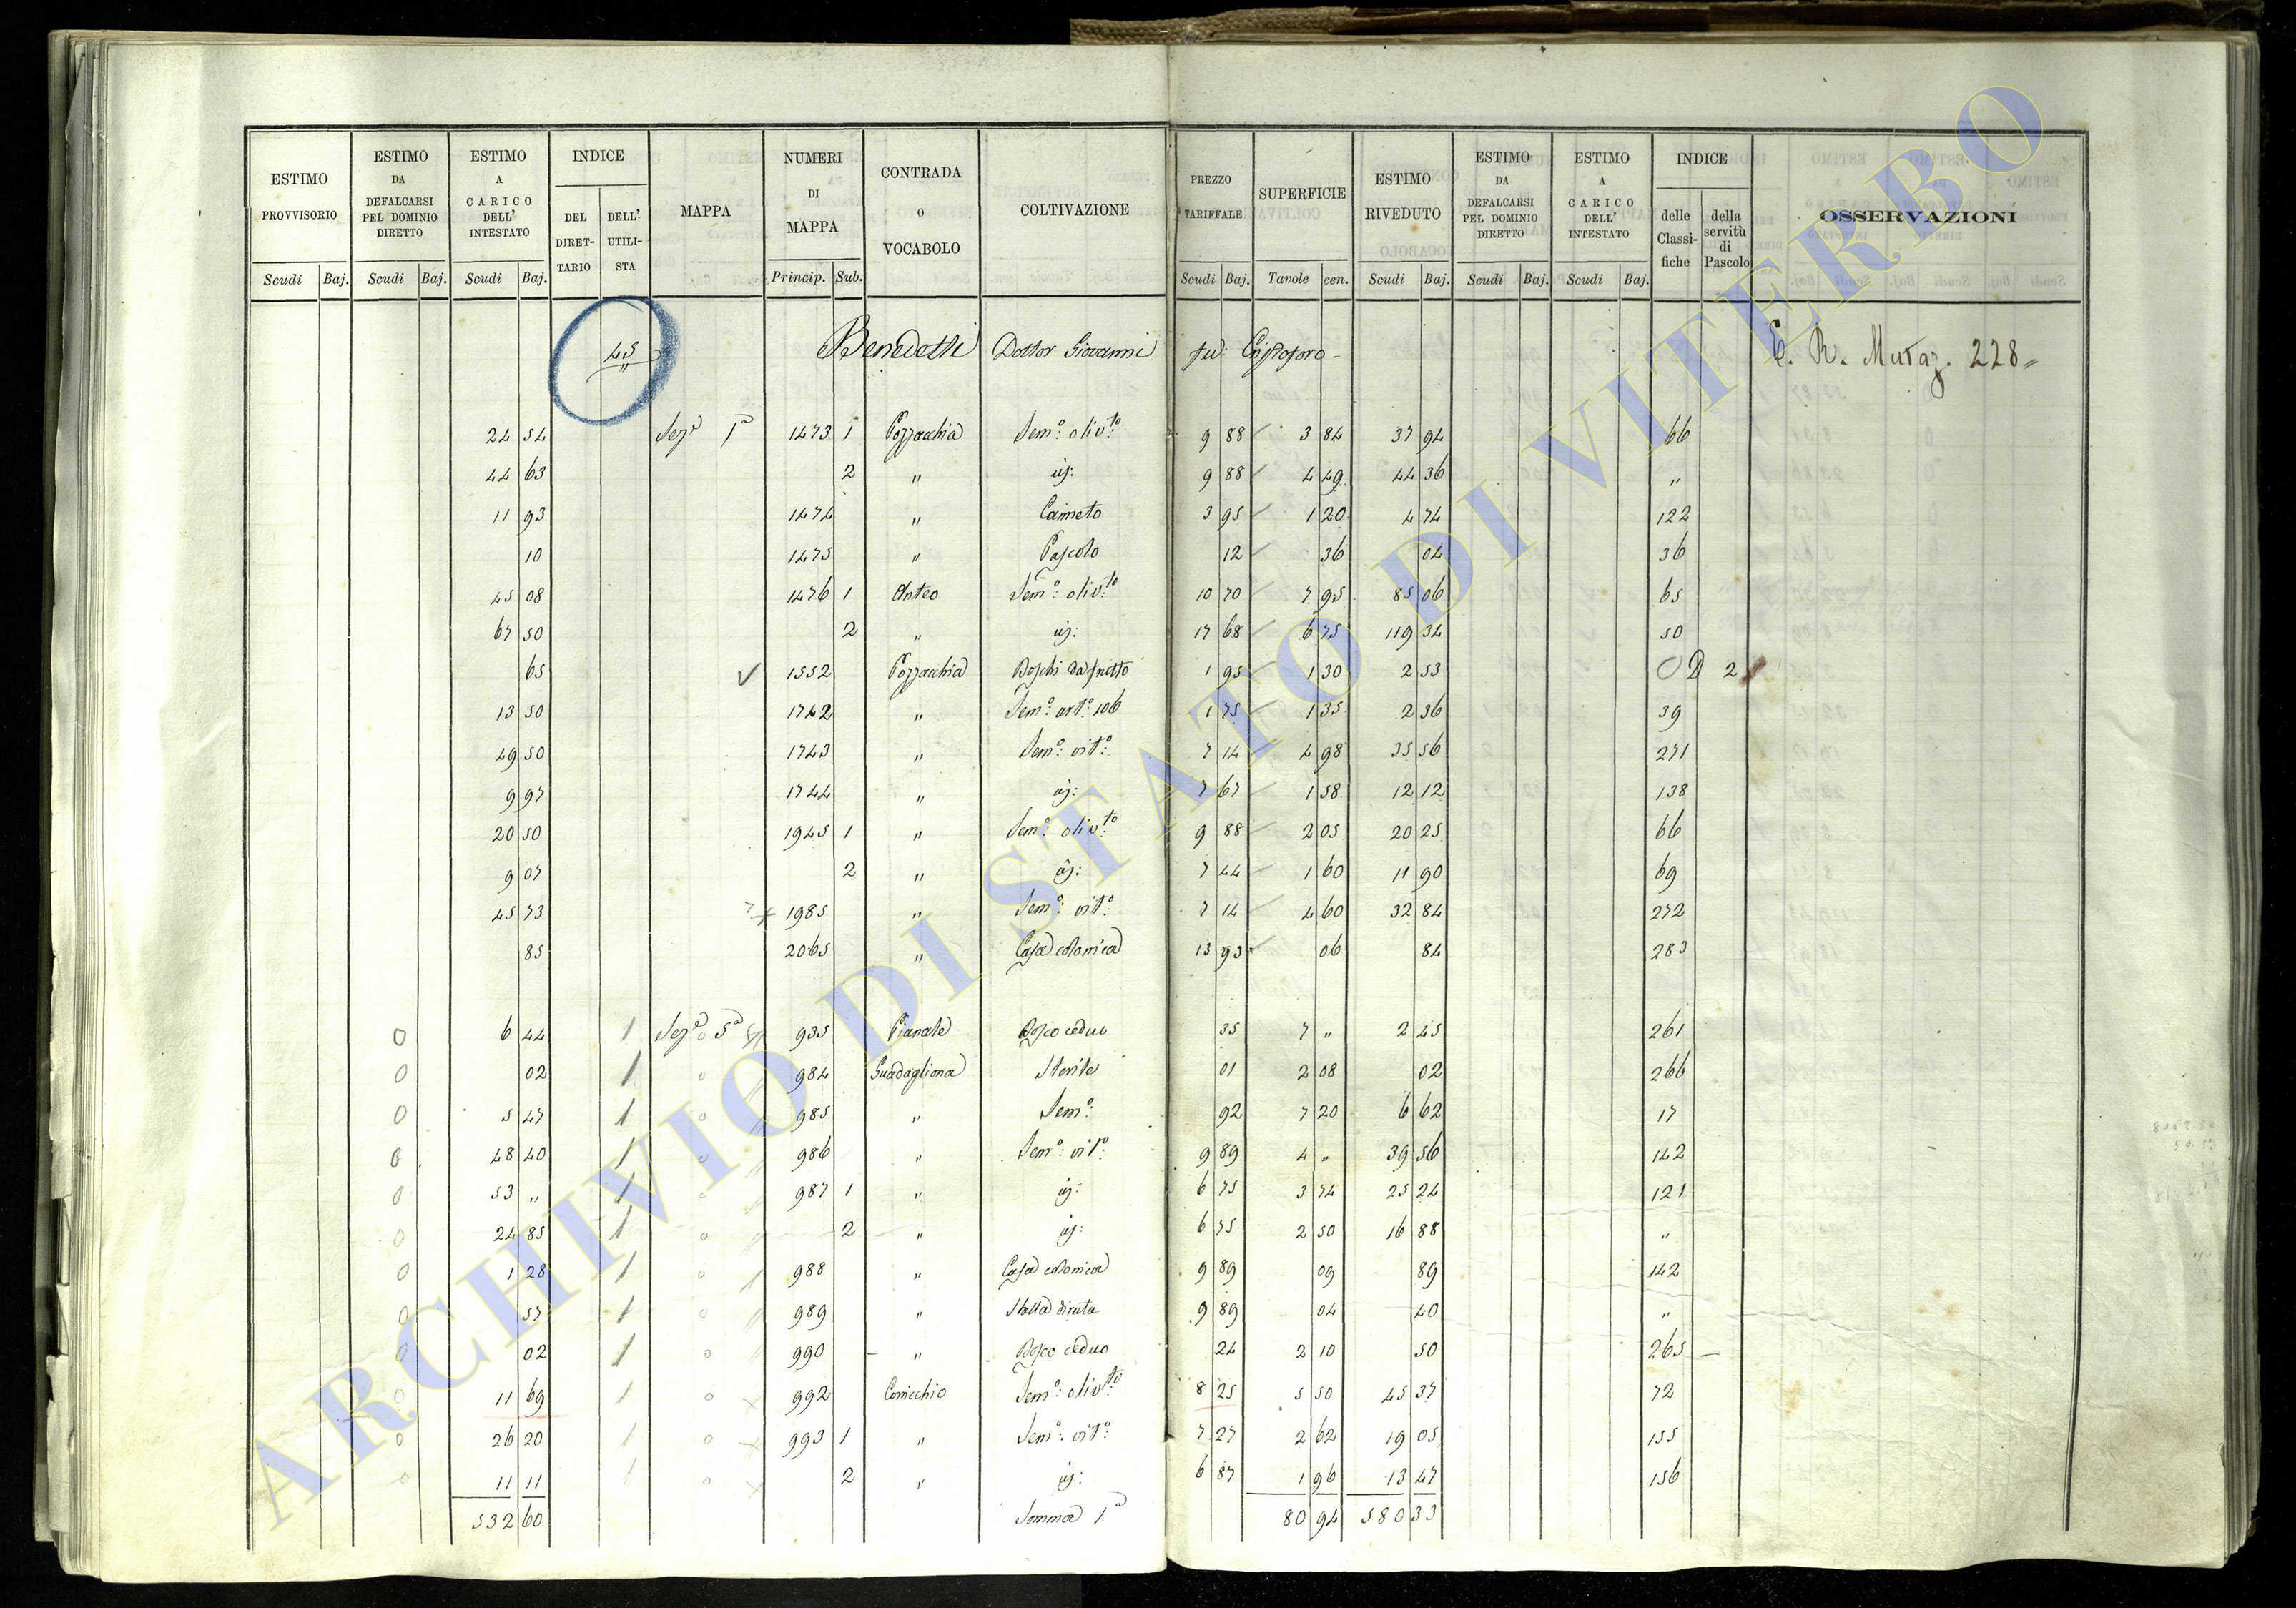 ESTIMO PROVVISORIO | ESTIMO DA DEFALCARSI PEL DOMINIO DIRETTO | ESTIMO A CARICO DELL' INTESTATO | INDICE DEL DIRET-TARIO | DELL' UTILI-STA | MAPPA | NUMERI DI MAPPA | CONTRADA O VOCABOLO | COLTIVAZIONE | PREZZO TARIFFALE | SUPERFICIE | ESTIMO RIVEDUTO | ESTIMO DA DEFALCARSI PEL DOMINIO DIRETTO | ESTIMO A CARICO DELL' INTESTATO | INDICE delle Classi-fiche | della servitù di Pascolo | OSSERVAZIONI
Scudi Baj. Scudi Baj. Scudi Baj. Princip. Sub. Scudi Baj. Tavole cen. Scudi Baj. Scudi Baj. Scudi Baj.
45 Benedetti Dottor Giovanni fu Cristoforo - E. R. Mutaz. 228
24 54 Sez.a 1a 1473 1 Pozzacchia Sem.o oliv.to 9 88 3 84 37 94 66
44 63 2 " id: 9 88 4 49 44 36 "
11 93 1474 " Canneto 3 95 1 20 4 74 122
10 1475 " Pascolo 12 36 04 36
45 08 1476 1 Anteo Sem.o oliv.to 10 70 7 95 85 06 65
67 50 2 " id: 17 68 6 75 119 34 50
65 1552 Pozzacchia Boschi da frutto 1 95 1 30 2 53 D 2
13 50 1742 " Sem.o 1 75 1 35 2 36 39
49 50 1743 " Sem.o vit.o 7 14 4 98 35 56 271
9 97 1744 " id: 7 67 1 58 12 12 138
20 50 1945 1 " Sem.o oliv.to 9 88 2 05 20 25 66
9 07 2 " id: 7 44 1 60 11 90 69
45 73 1985 " Sem.o vit.o 7 14 4 60 32 84 272
85 2065 " Casa colonica 13 93 06 84 283
0 6 44 1 Sez.e 5a 935 Pianale Bosco ceduo 35 7 " 2 45 261
0 02 1 984 Guadagliona Sterile 01 2 08 02 266
0 5 47 1 985 " Sem.o 92 7 20 6 62 17
0 48 40 1 986 " Sem.o vit.o 9 89 4 " 39 56 142
0 53 " 1 987 1 " id: 6 75 3 74 25 24 121
0 24 85 1 2 " id: 6 75 2 50 16 88 "
0 1 28 1 988 " Casa colonica 9 89 09 89 142
0 57 1 989 " Stalla diruta 9 89 04 40 "
0 02 1 990 " Bosco ceduo 24 2 10 50 265
0 11 69 1 992 Cornicchio Sem.o oliv.to 8 25 5 50 45 37 72
0 26 20 1 993 1 " Sem.o vit.o 7 27 2 62 19 05 155
0 11 11 1 2 " id: 6 87 1 96 13 47 156
532 60 Somma 1a 80 94 580 33
ARCHIVIO DI STATO DI VITERBO